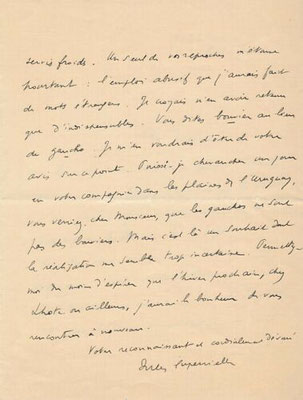 servie froide. Un seul de vos reproches m'étonne
pourtant : l'emploi abusif que j'aurais fait
de mots étrangers. Je croyais n'en avoir retenu
que d'indispensables. Vous dites bouvier au lieu
de gaucho. Je m'en voudrais d'être de votre
avis sur ce point. Puissé-je chevaucher un jour
en votre compagnie dans les plaines de l'Uruguay,
vous verriez, cher Monsieur, que les gauchos ne sont
pas des bouviers. Mais c'est là un souhait dont
la réalisation me semble trop incertaine. Permettez-
moi du moins d'espérer que l'hiver prochain, chez
Lhote ou ailleurs, j'aurai le bonheur de vous
rencontrer à nouveau.
Votre reconnaissant et cordialement dévoué
Jules Supervielle